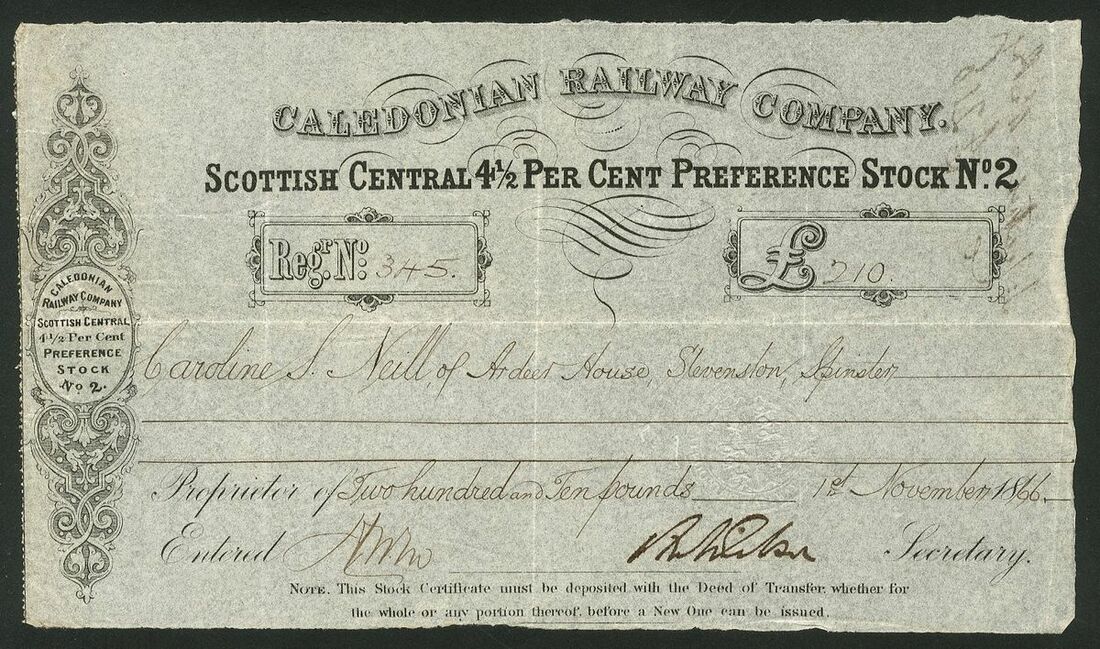 CALEDONIAN RAILWAY COMPANY.
SCOTTISH CENTRAL 4½ PER CENT PREFERENCE STOCK No. 2
Regr. No. 345.
£ 210.
CALEDONIAN
RAILWAY COMPANY
SCOTTISH CENTRAL
4½ Per Cent
PREFERENCE
STOCK
No 2.
Caroline S. Neill, of Ardeer House, Stevenston, Spinster
Proprietor of Two hundred and Ten pounds 1st November 1866.
Entered
Secretary.
NOTE. This Stock Certificate must be deposited with the Deed of Transfer, whether for
the whole or any portion thereof, before a New One can be issued.